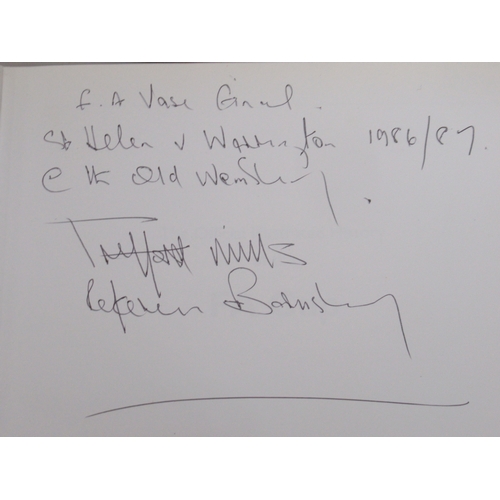 F.A Vase Final.
St Helen v Warrington 1986/87.
@ the Old Wembley.
Trelford Mills
Referee Barnsley